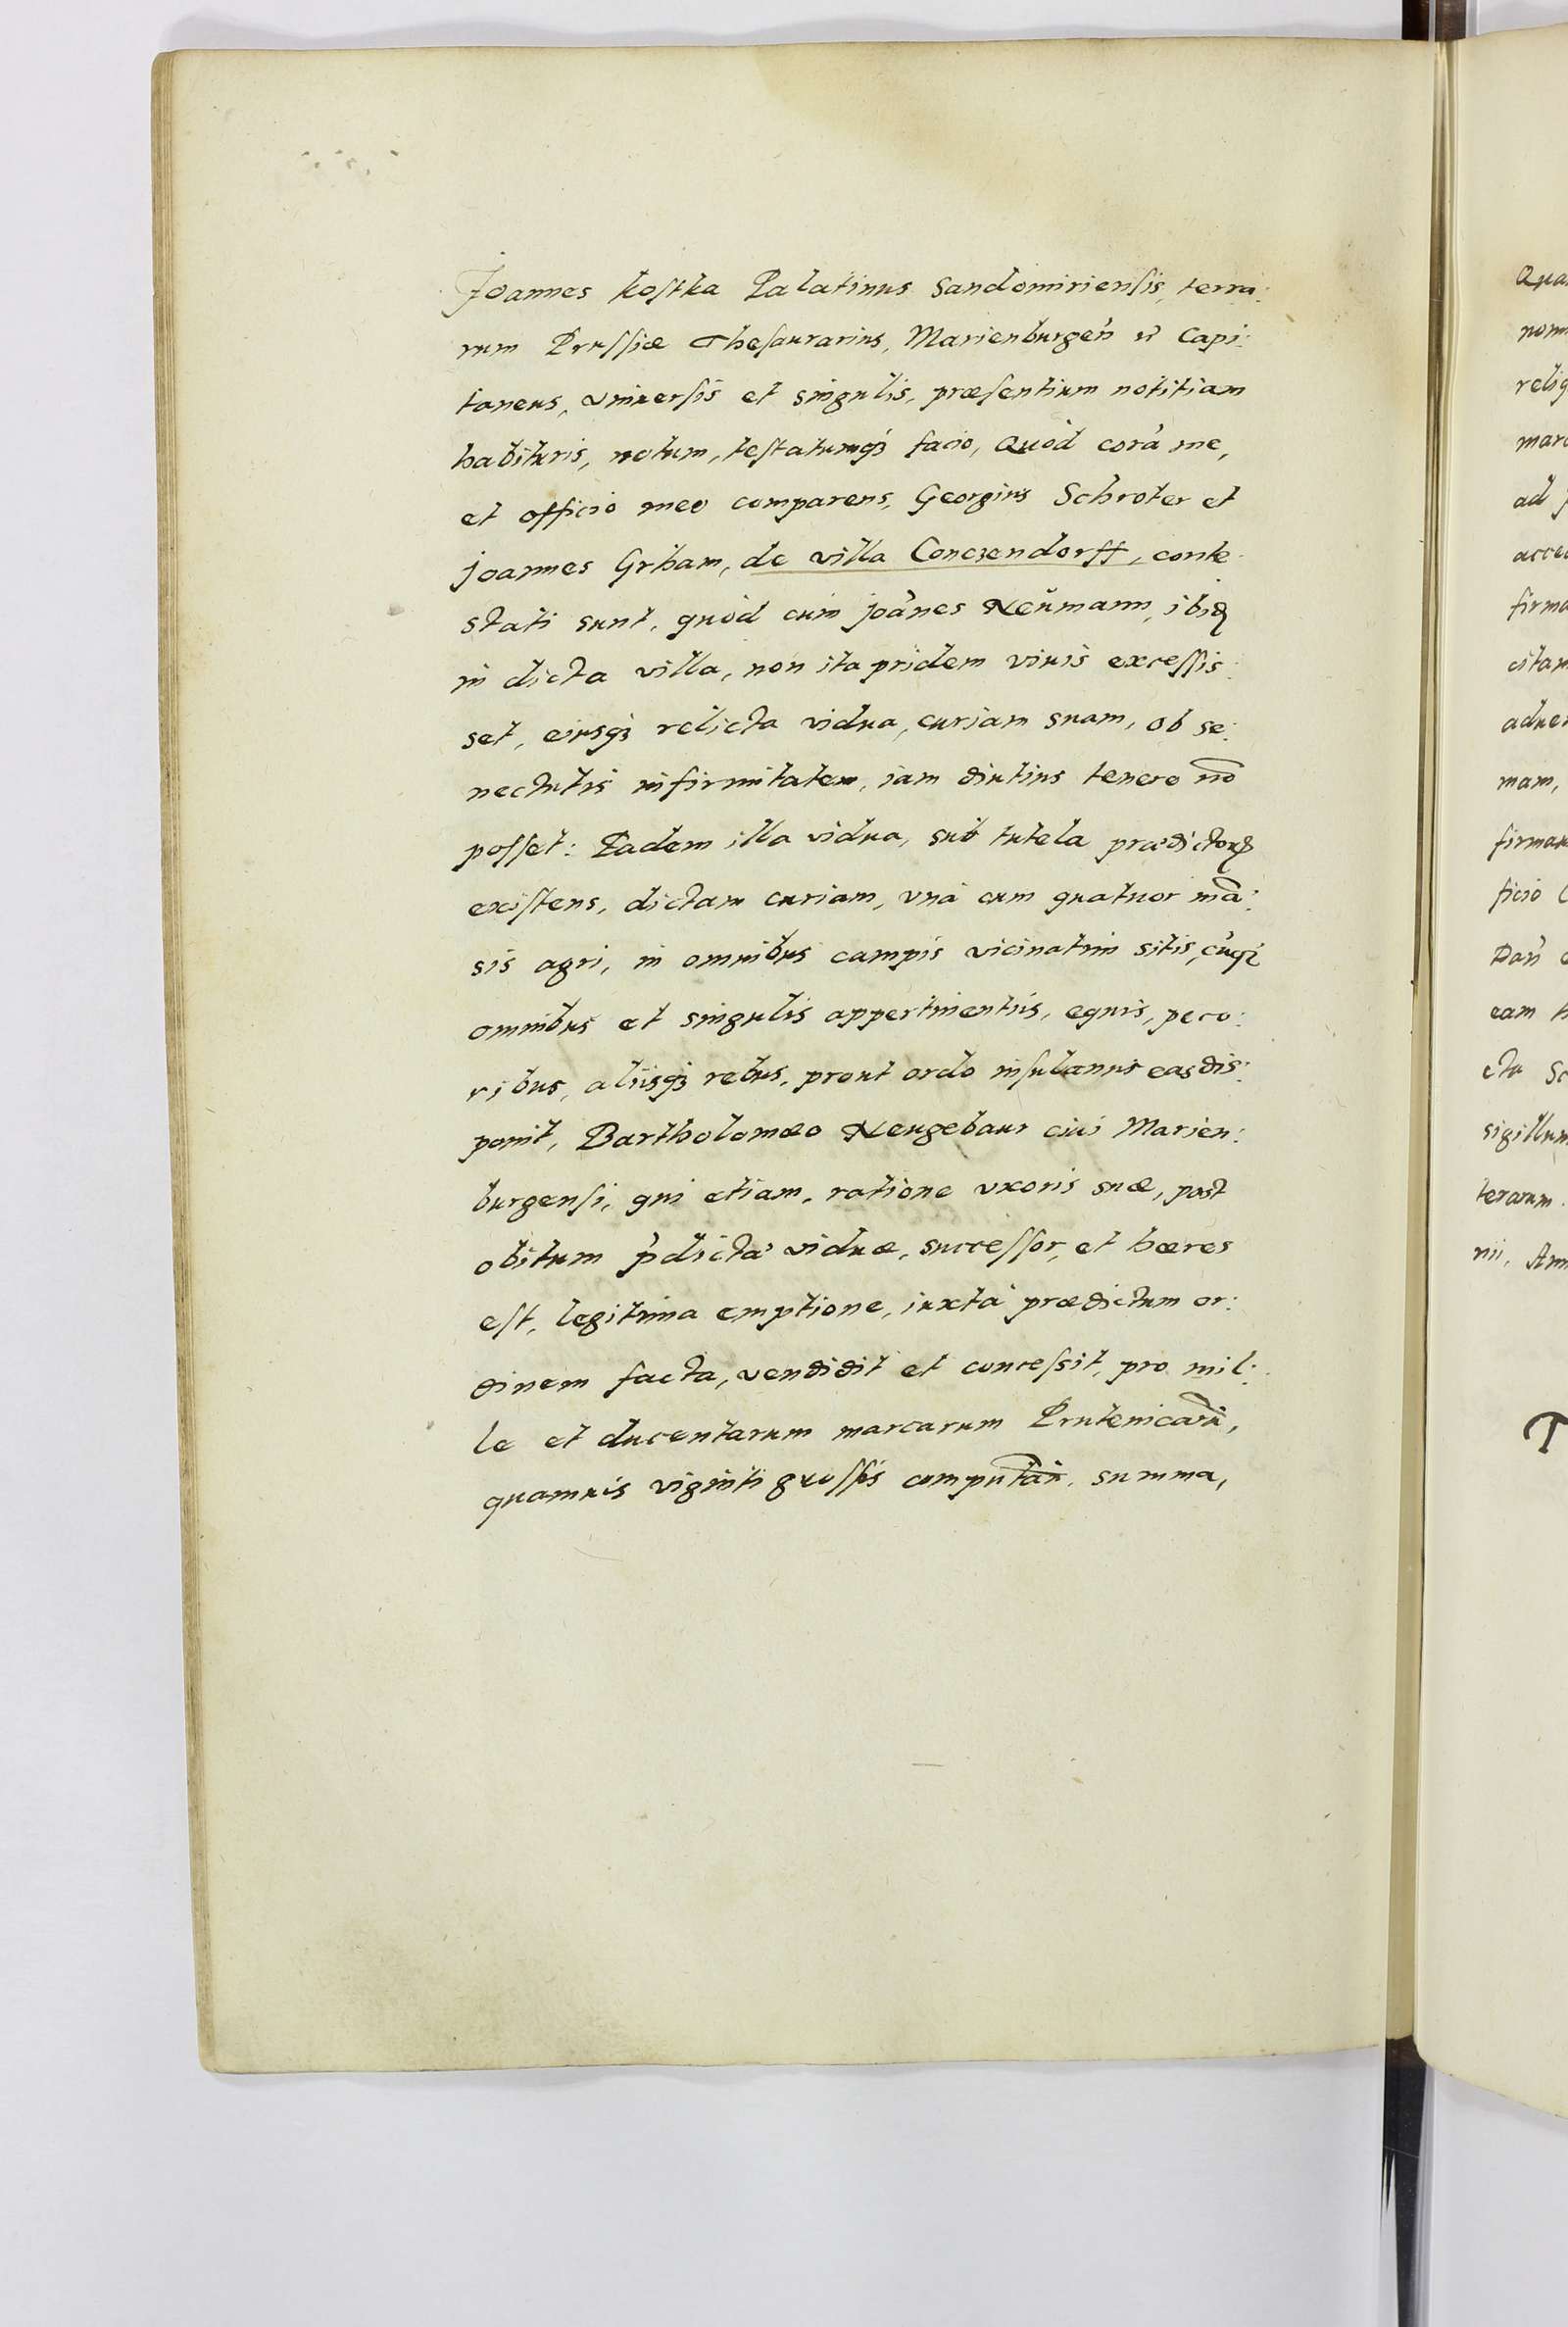 Joannes Kostka Palatinus Sandomiriensis, terra:
rum Prussiæ Thesaurarius, Marienburgeñ Capi:
taneus, vniuersis et singulis, præsentium notitiam
habituris, notum, testatumq3 facio, Quòd corã me,
et officio meo comparens, Georgius Schroter et
Joannes Grham, de villa Conczendorff, conte
stati sunt, quòd cum joãnes Neŭmann, ibid
in dicta villa, non ita pridem viuis excessis:
set, eiusq3 relicta vidua, curiam suam, ob se:
nectutis infirmitatem, iam diutius tenere nõ
posset: Eadem illa vidua, sub tutela prædictorꝝ
existens, dictam curiam, vnà cum quatuor mã:
sis agri, in omnibus campis vicinatim sitis, cũq3
omnibus et singulis appertinentiis, equis, peco:
ribus, aliisq3 rebus, prout ordo insulanus eas dis:
ponit, Bartholomæo Neugebaur ciui Marien:
burgensi, qui etiam, ratione vxoris suæ, post
obitum p̃dictæ viduæ, successor, et hæres
est, legitima emptione, iuxtà prædictum or:
dinem facta, vendidit et concessit, pro mil:
le et ducentarum marcarum Prutenicarũ,
quamuis viginti grossis computañ. summa,
Qua
nom
relig
marc
ad
acce
firma
citam
adue
mam,
firmau
ficio C
Dañ
eam
cta Sc
sigillum
terarum.
nii, Ann
T